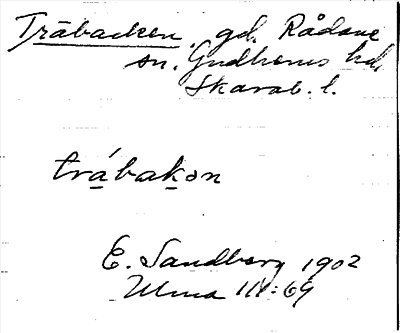 Träbacken, gd, Rådane
sn. Gudhems hd,
Skarab. l.
trábakən
E. Sandberg 1902
Ulma 111:69